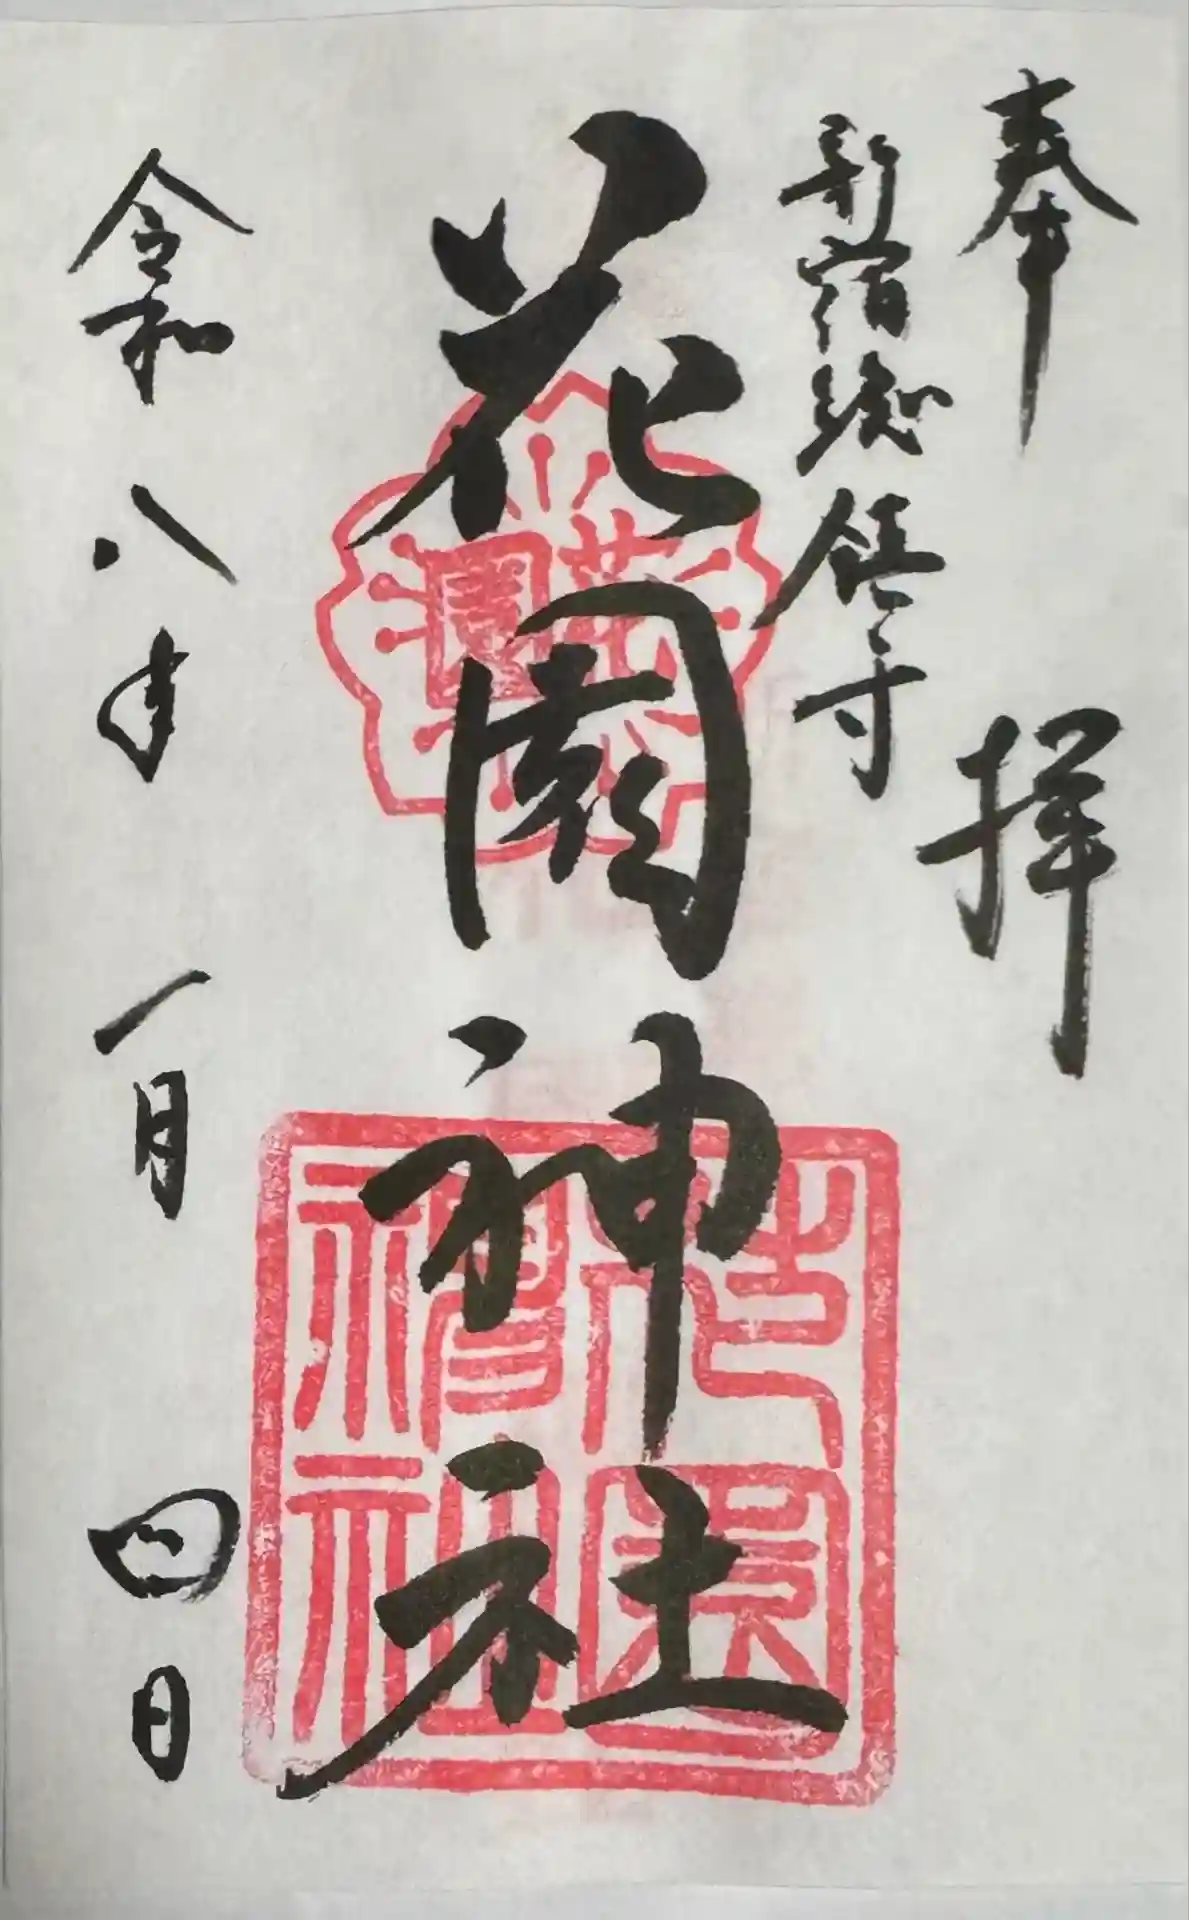 奉拝
新宿総鎮守
花園神社
花園
花園神社
令和八年一月四日